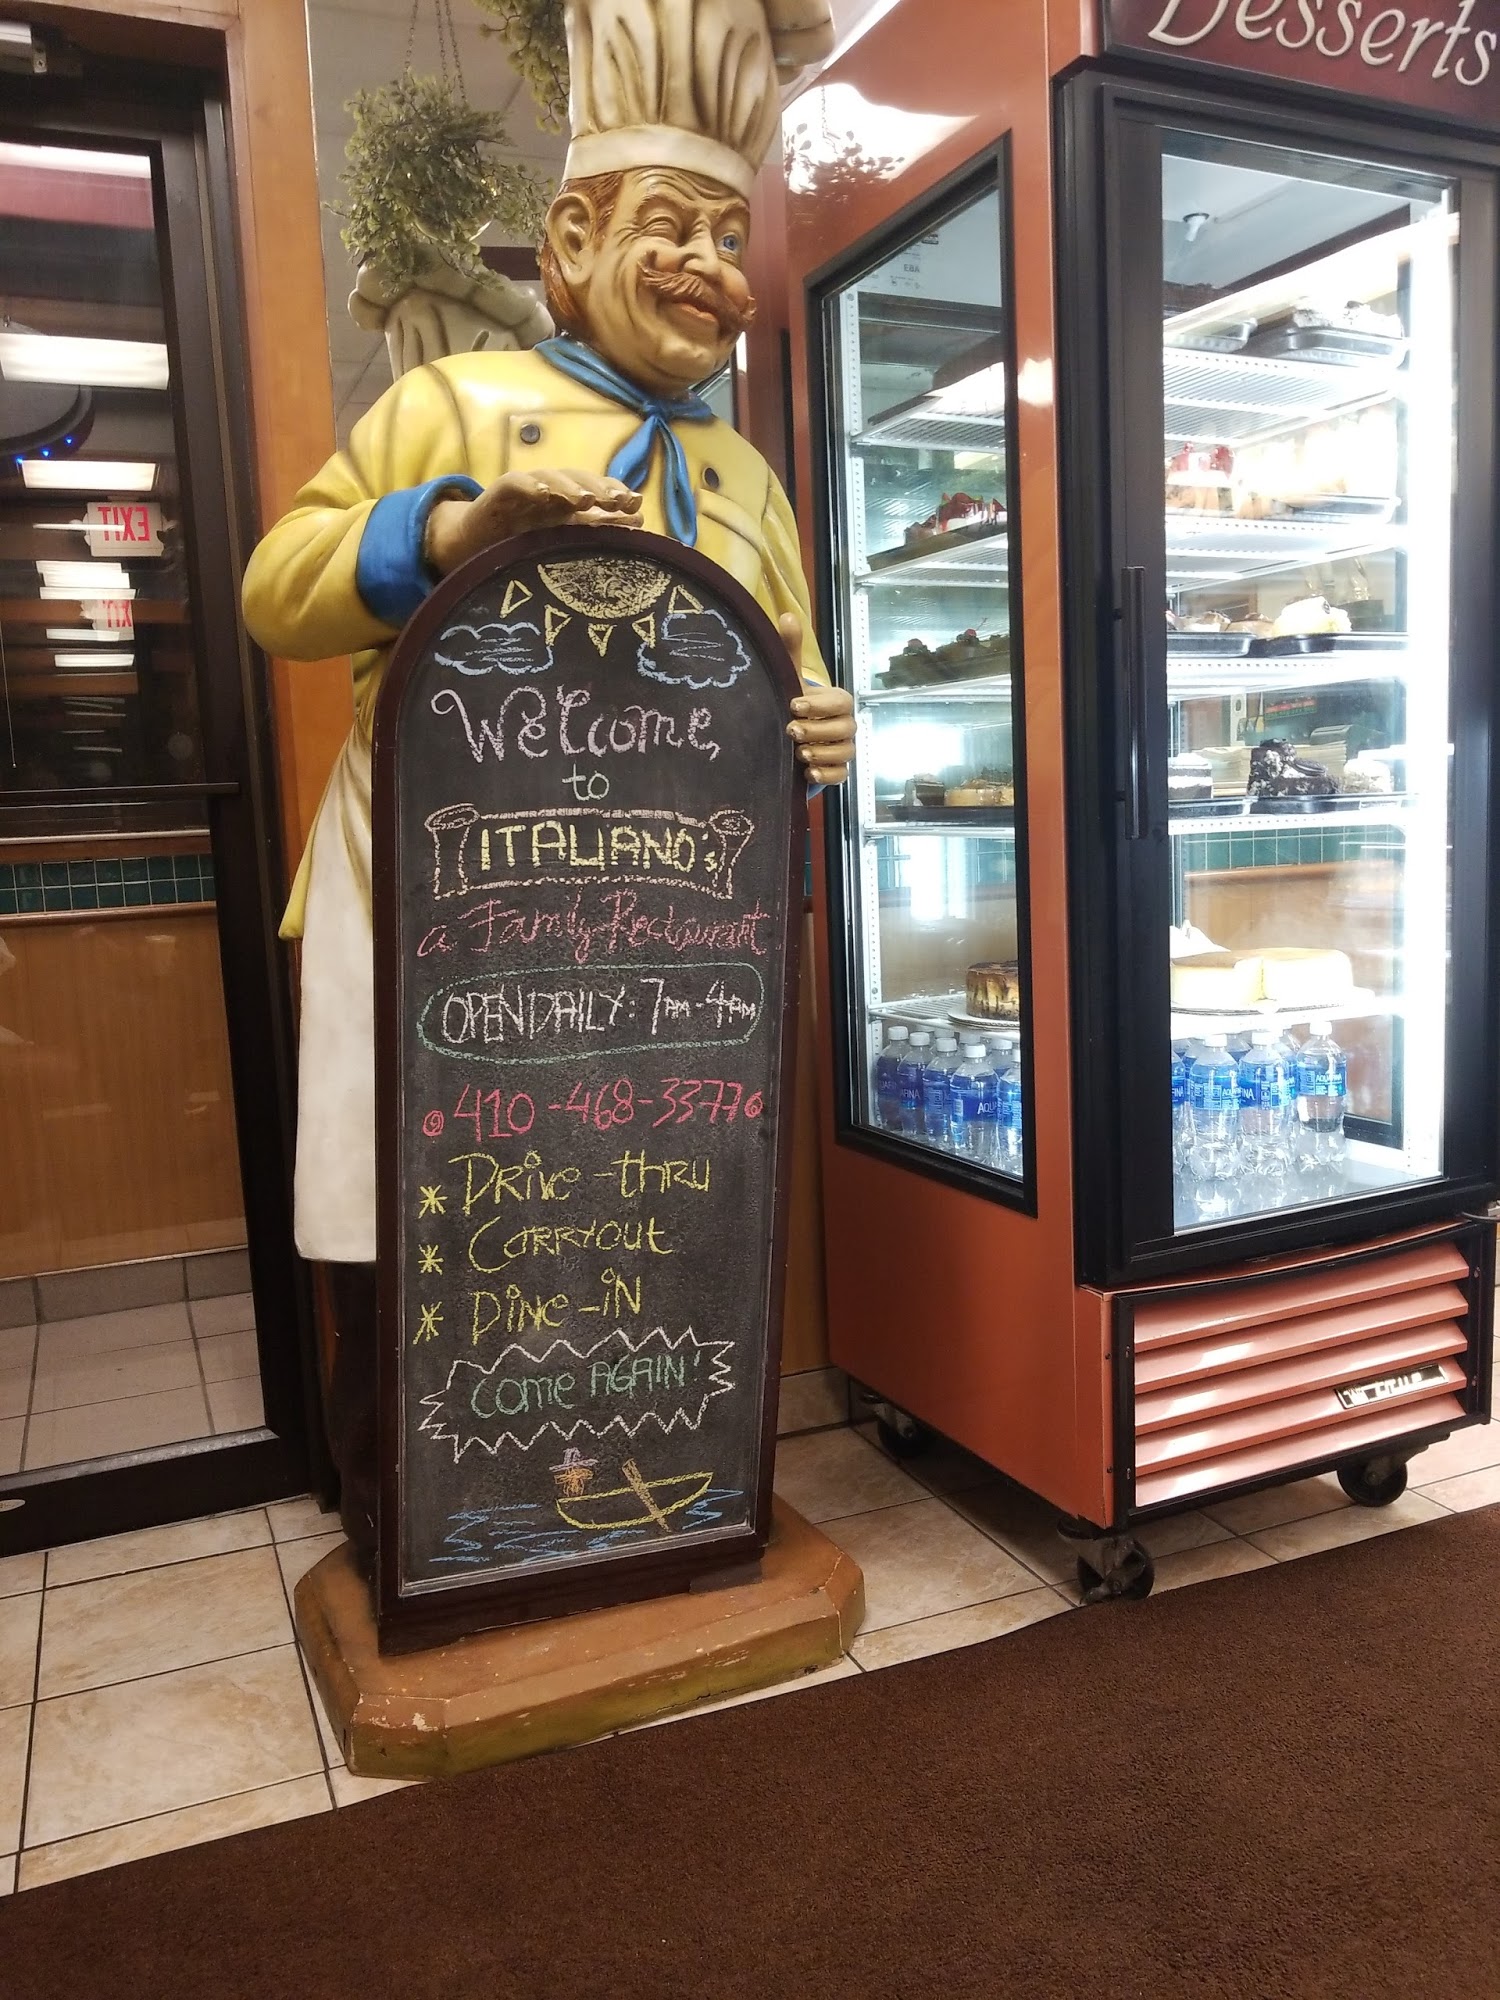 Desserts
EXIT
Welcome,
to
ITALIANO's
a Family Restaurant
OPEN DAILY: 7AM-4AM
410-468-3377
* Drive-thru
* Carryout
* Dine-in
Come AGAIN!
AQUAFINA
True